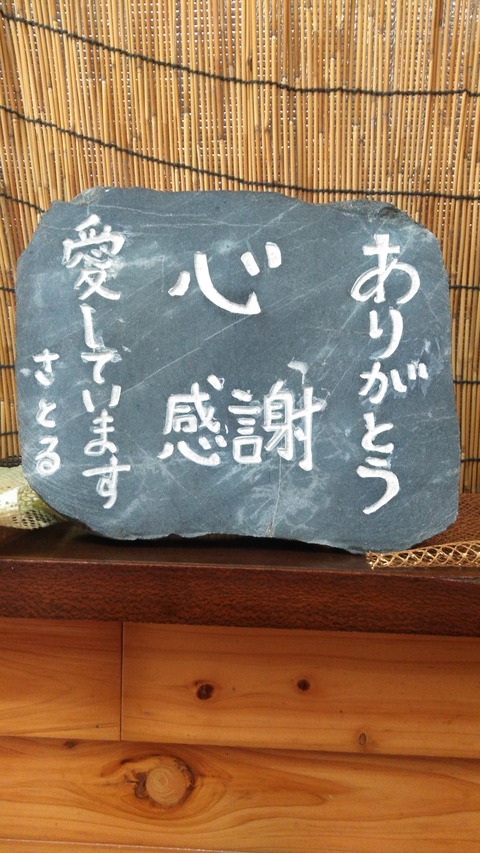 ありがとう
心
感謝
愛しています
さとる